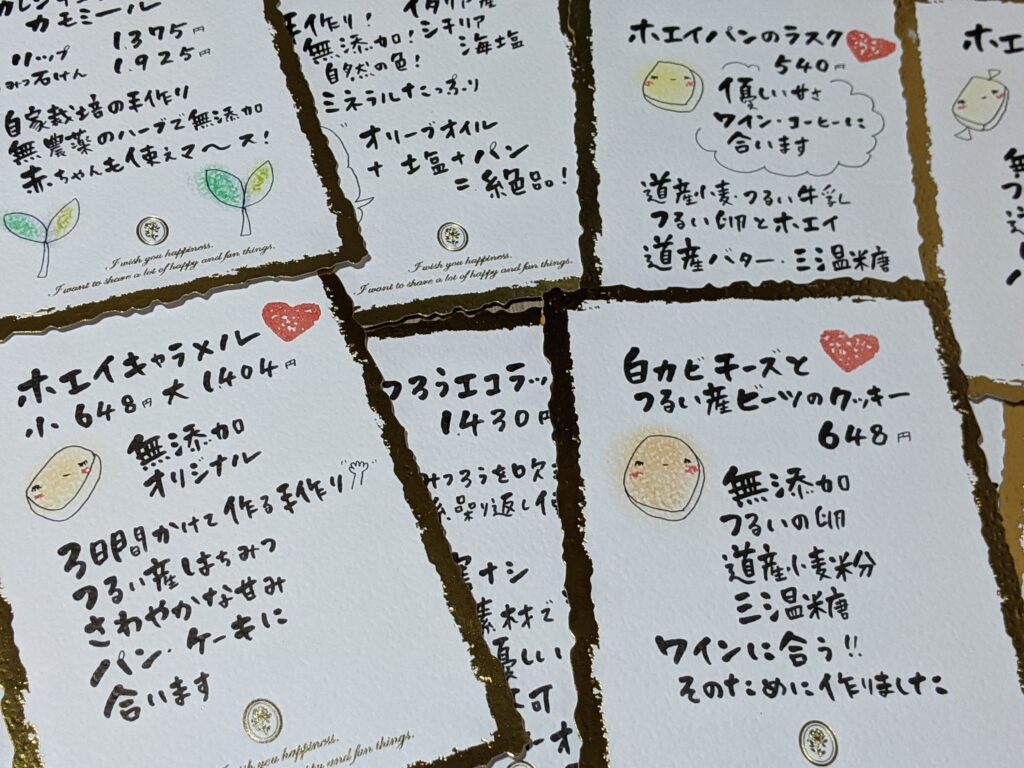 カモミール
リップ 1.375円
みつ石けん 1.925円
自家栽培の手作り
無農薬のハーブで無添加
赤ちゃんも使えマース!
I wish you happiness.
I want to share a lot of happy and fun things.
手作り! イタリア産
無添加! シチリア
自然の色! 海塩
ミネラルたっぷり
オリーブオイル
+土塩+パン
=絶品!
I wish you happiness.
I want to share a lot of happy and fun things.
ホエイパンのラスク
540円
優しい甘さ
ワイン・コーヒーに
合います
道産小麦・つるい牛乳
つるい卵とホエイ
道産バター・三温糖
ホエ
無
ホエイキャラメル
小 648円 大 1.404円
無添加
オリジナル
3日間かけて作る手作り
つるい産はちみつ
さわやかな甘み
パン・ケーキに
合います
wish you happiness.
and fun things.
つろうエコラッ
1.430円
みつろうを吹
繰り返し使
ナシ
素材で
優しい
可
ーオ
白カビチーズと
つるい産ビーツのクッキー
648円
無添加
つるいの卵
道産小麦粉
三温糖
ワインに合う!!
そのために作りました